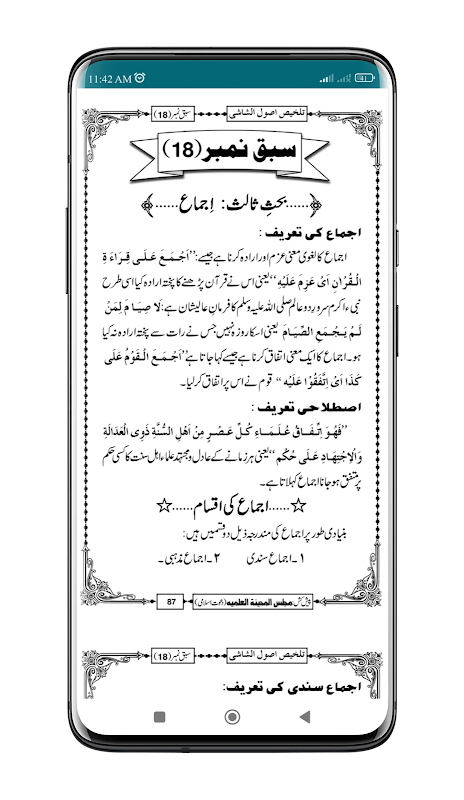 11:42 AM
تلخیص اصول الشاشی
سبق نمبر (18)
سبق نمبر (18)
......بحثِ ثالث: اِجماع......
اجماع کی تعریف :
اجماع کا لغوی معنی عزم اور ارادہ کرنا ہے جیسے: ’’اَجْمَعَ عَـلٰـی قِرَاءَ ۃِ
الْـقُرْاٰنِ اَیْ عَزِمَ عَلَیْہِ‘‘ یعنی اس نے قرآن پڑھنے کا پختہ ارادہ کیا اسی طرح
نبیء اکرم سرورِ دو عالم صلی اللہ علیہ وسلم کا فرمان عالیشان ہے : لَا صِیَـامَ لِمَنْ
لَّمْ یَـجْمَعِ الصِّیَـامَ یعنی اسکا روزہ نہیں جس نے رات سے پختہ ارادہ نہ کیا
ہو۔ اجماع کا ایک معنی اتفاق کرنا ہے جیسے کہا جاتا ہے ’’اَجْمَعَ الْـقَـوْمُ عَلٰی
کَذَا اَیْ اِتَّفَقُوْا عَلَیْہ‘‘ قوم نے اس پر اتفاق کرلیا۔
اصطلاحی تعریف :
’’فَھُوَ اِتِّـفَـاقُ عُـلَـمَـاءِ کُلِّ عَـصْـرٍ مِنْ اَھْلِ السُّنَّۃِ ذَوِی الْعَدَالَۃِ
وَالْاِجْتِھَادِ عَلٰی حُکْمٍ‘‘ یعنی ہر زمانے کے عادل و مجتہد علماء اہل سنت کا کسی حکم
پر متفق ہو جانا اجماع کہلاتا ہے۔
☆......اجماع کی اقسام......☆
بنیادی طور پر اجماع کی مندرجہ ذیل دو قسمیں ہیں:
۱۔ اجماع سندی ۲۔ اجماع مذہبی۔
پیش کش: مجلس المدینۃ العلمیہ (دعوت اسلامی)
87
تلخیص اصول الشاشی
سبق نمبر (18)
اجماع سندی کی تعریف: